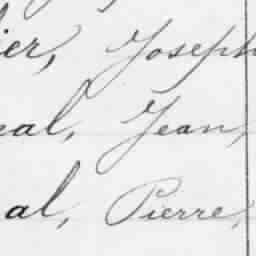 ier, Joseph
eal, Jean,
al, Pierre,